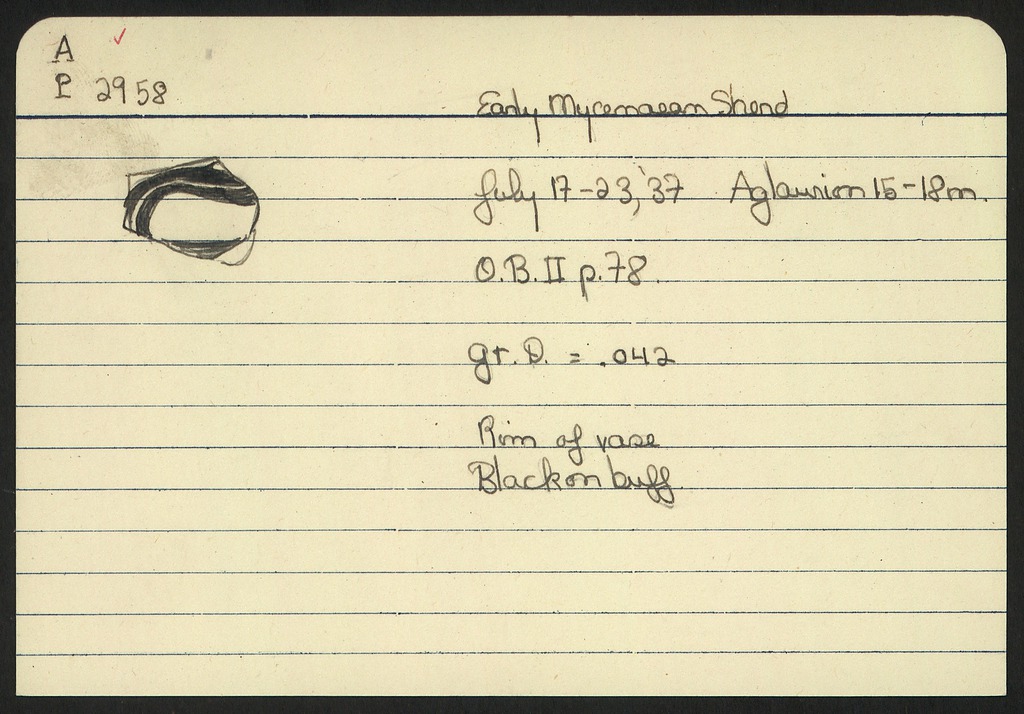 A
P 2958
Early Mycenaean Sherd
July 17-23, '37 Aglaurion 15-18m.
O.B. II p.78.
gr. D. = .042
Rim of vase
Black on buff